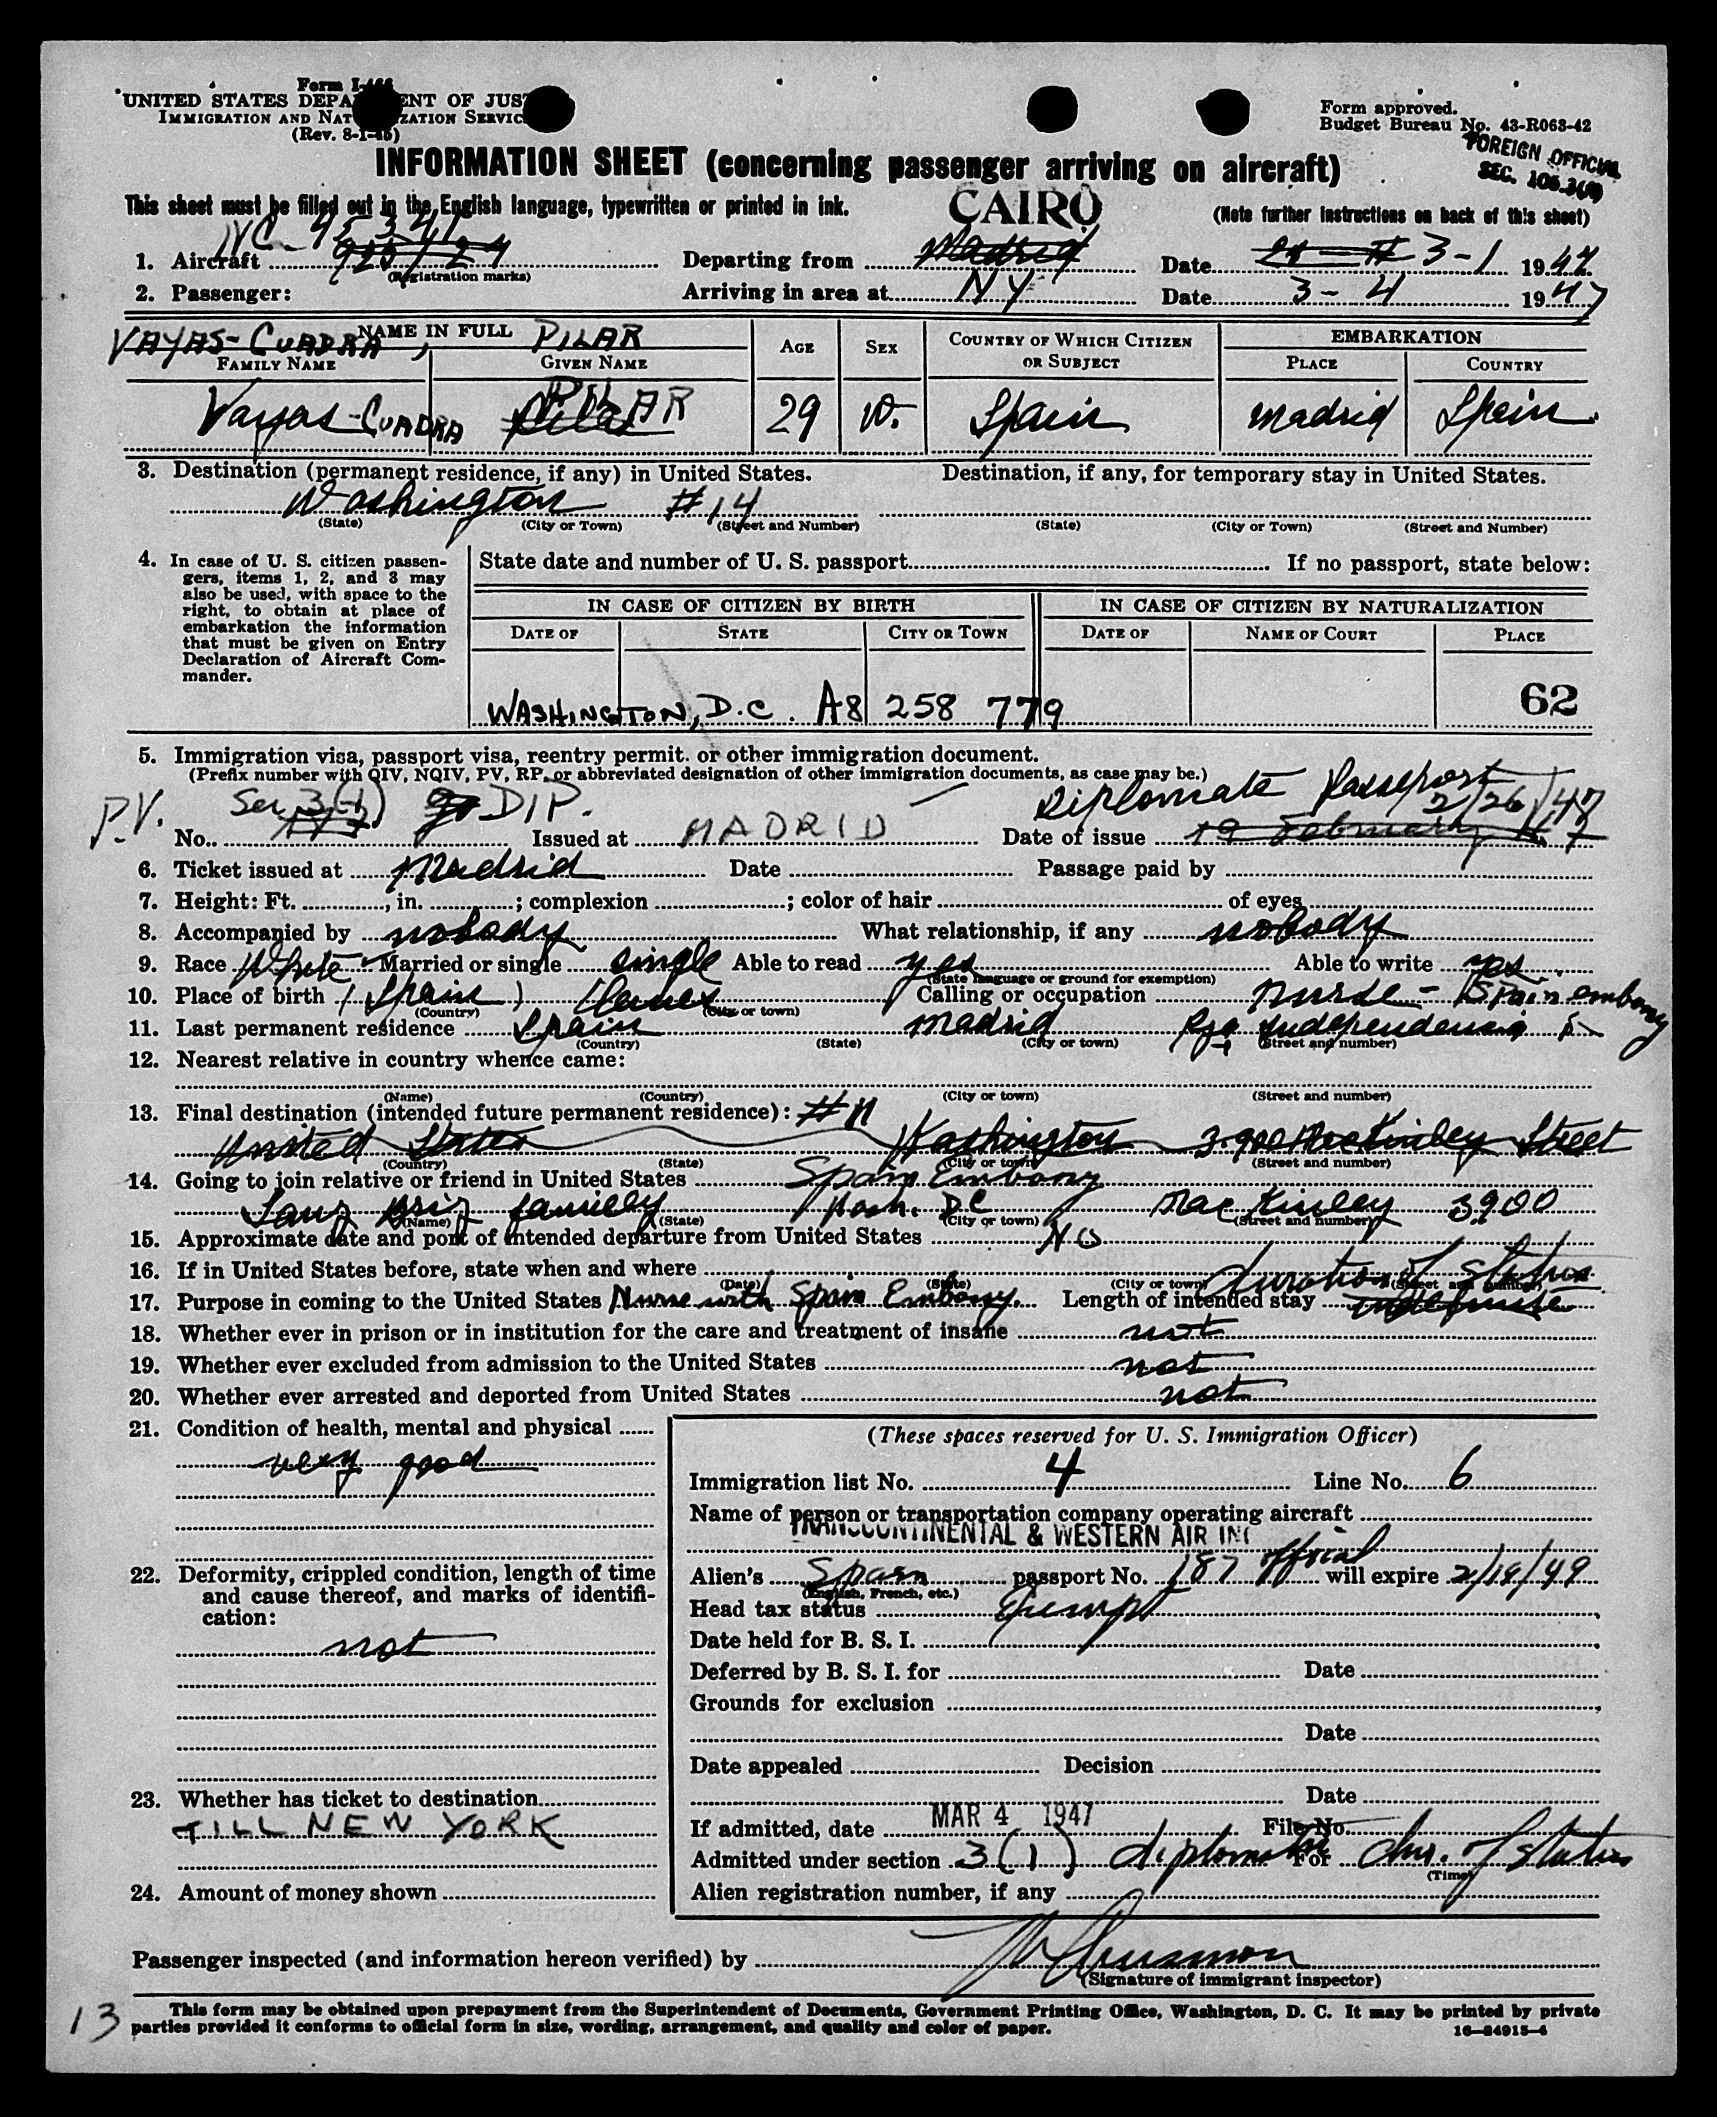 Form I-466
UNITED STATES DEPARTMENT OF JUSTICE
IMMIGRATION AND NATURALIZATION SERVICE
(Rev. 8-1-46)
Form approved.
Budget Bureau No. 43-R063-42
FOREIGN OFFICIAL
SEC.
INFORMATION SHEET (concerning passenger arriving on aircraft)
This sheet must be filled out in the English language, typewritten or printed in ink. CAIRO (Note further instructions on back of this sheet)
NC- 45341
1. Aircraft (Registration marks) Departing from Madrid Date 3-1 1947
2. Passenger: Arriving in area at NY Date 3-4 1947
VAYAS-CUADRA, NAME IN FULL PILAR
FAMILY NAME GIVEN NAME AGE SEX COUNTRY OF WHICH CITIZEN OR SUBJECT EMBARKATION PLACE COUNTRY
Vayas-CUADRA PILAR 29 W. Spain Madrid Spain
3. Destination (permanent residence, if any) in United States. Destination, if any, for temporary stay in United States.
Washington #14
(State) (City or Town) (Street and Number) (State) (City or Town) (Street and Number)
4. In case of U. S. citizen passengers, items 1, 2, and 3 may also be used, with space to the right, to obtain at place of embarkation the information that must be given on Entry Declaration of Aircraft Commander.
State date and number of U. S. passport If no passport, state below:
IN CASE OF CITIZEN BY BIRTH IN CASE OF CITIZEN BY NATURALIZATION
DATE OF STATE CITY OR TOWN DATE OF NAME OF COURT PLACE
WASHINGTON, D.C. A8 258 779 62
5. Immigration visa, passport visa, reentry permit. or other immigration document.
(Prefix number with QIV, NQIV, PV, RP, or abbreviated designation of other immigration documents, as case may be.)
P.V. Sec 3(1) DIP. Diplomate Passeport 2/26/47
No. Issued at MADRID Date of issue 19 February 47
6. Ticket issued at Madrid Date Passage paid by
7. Height: Ft. , in. ; complexion ; color of hair of eyes
8. Accompanied by nobody What relationship, if any nobody
9. Race White Married or single single Able to read yes Able to write yes
(State language or ground for exemption)
10. Place of birth (Spain) Calling or occupation Nurse - Spain embassy
(Country) (City or town)
11. Last permanent residence Spain Madrid Independencia 5
(Country) (State) (City or town) (Street and number)
12. Nearest relative in country whence came:
(Name) (Country) (City or town) (Street and number)
13. Final destination (intended future permanent residence): #11
United States Washington 3.900 MacKinley Street
(Country) (State) (City or town) (Street and number)
14. Going to join relative or friend in United States Spain Embassy
familly Wash. DC Mac Kinley 3900
(Name) (State) (City or town) (Street and number)
15. Approximate date and port of intended departure from United States NO
16. If in United States before, state when and where
(Date) (State) (City or town) (Street and number)
duration of Status
17. Purpose in coming to the United States Nurse with Spain Embassy. Length of intended stay indefinite
18. Whether ever in prison or in institution for the care and treatment of insane not
19. Whether ever excluded from admission to the United States not
20. Whether ever arrested and deported from United States not
21. Condition of health, mental and physical
very good
22. Deformity, crippled condition, length of time and cause thereof, and marks of identification:
not
23. Whether has ticket to destination
TILL NEW YORK
24. Amount of money shown
(These spaces reserved for U. S. Immigration Officer)
Immigration list No. 4 Line No. 6
Name of person or transportation company operating aircraft
TRANSCONTINENTAL & WESTERN AIR INC
Alien's Spain passport No. 187 official will expire 2/18/49
(English, French, etc.)
Head tax status Exempt
Date held for B. S. I.
Deferred by B. S. I. for Date
Grounds for exclusion
Date
Date appealed Decision
Date
If admitted, date MAR 4 1947 File No.
Admitted under section 3(1) diplomatic For dur. of status
(Time)
Alien registration number, if any
Passenger inspected (and information hereon verified) by
(Signature of immigrant inspector)
13
This form may be obtained upon prepayment from the Superintendent of Documents, Government Printing Office, Washington, D. C. It may be printed by private
parties provided it conforms to official form in size, wording, arrangement, and quality and color of paper. 16-24915-4